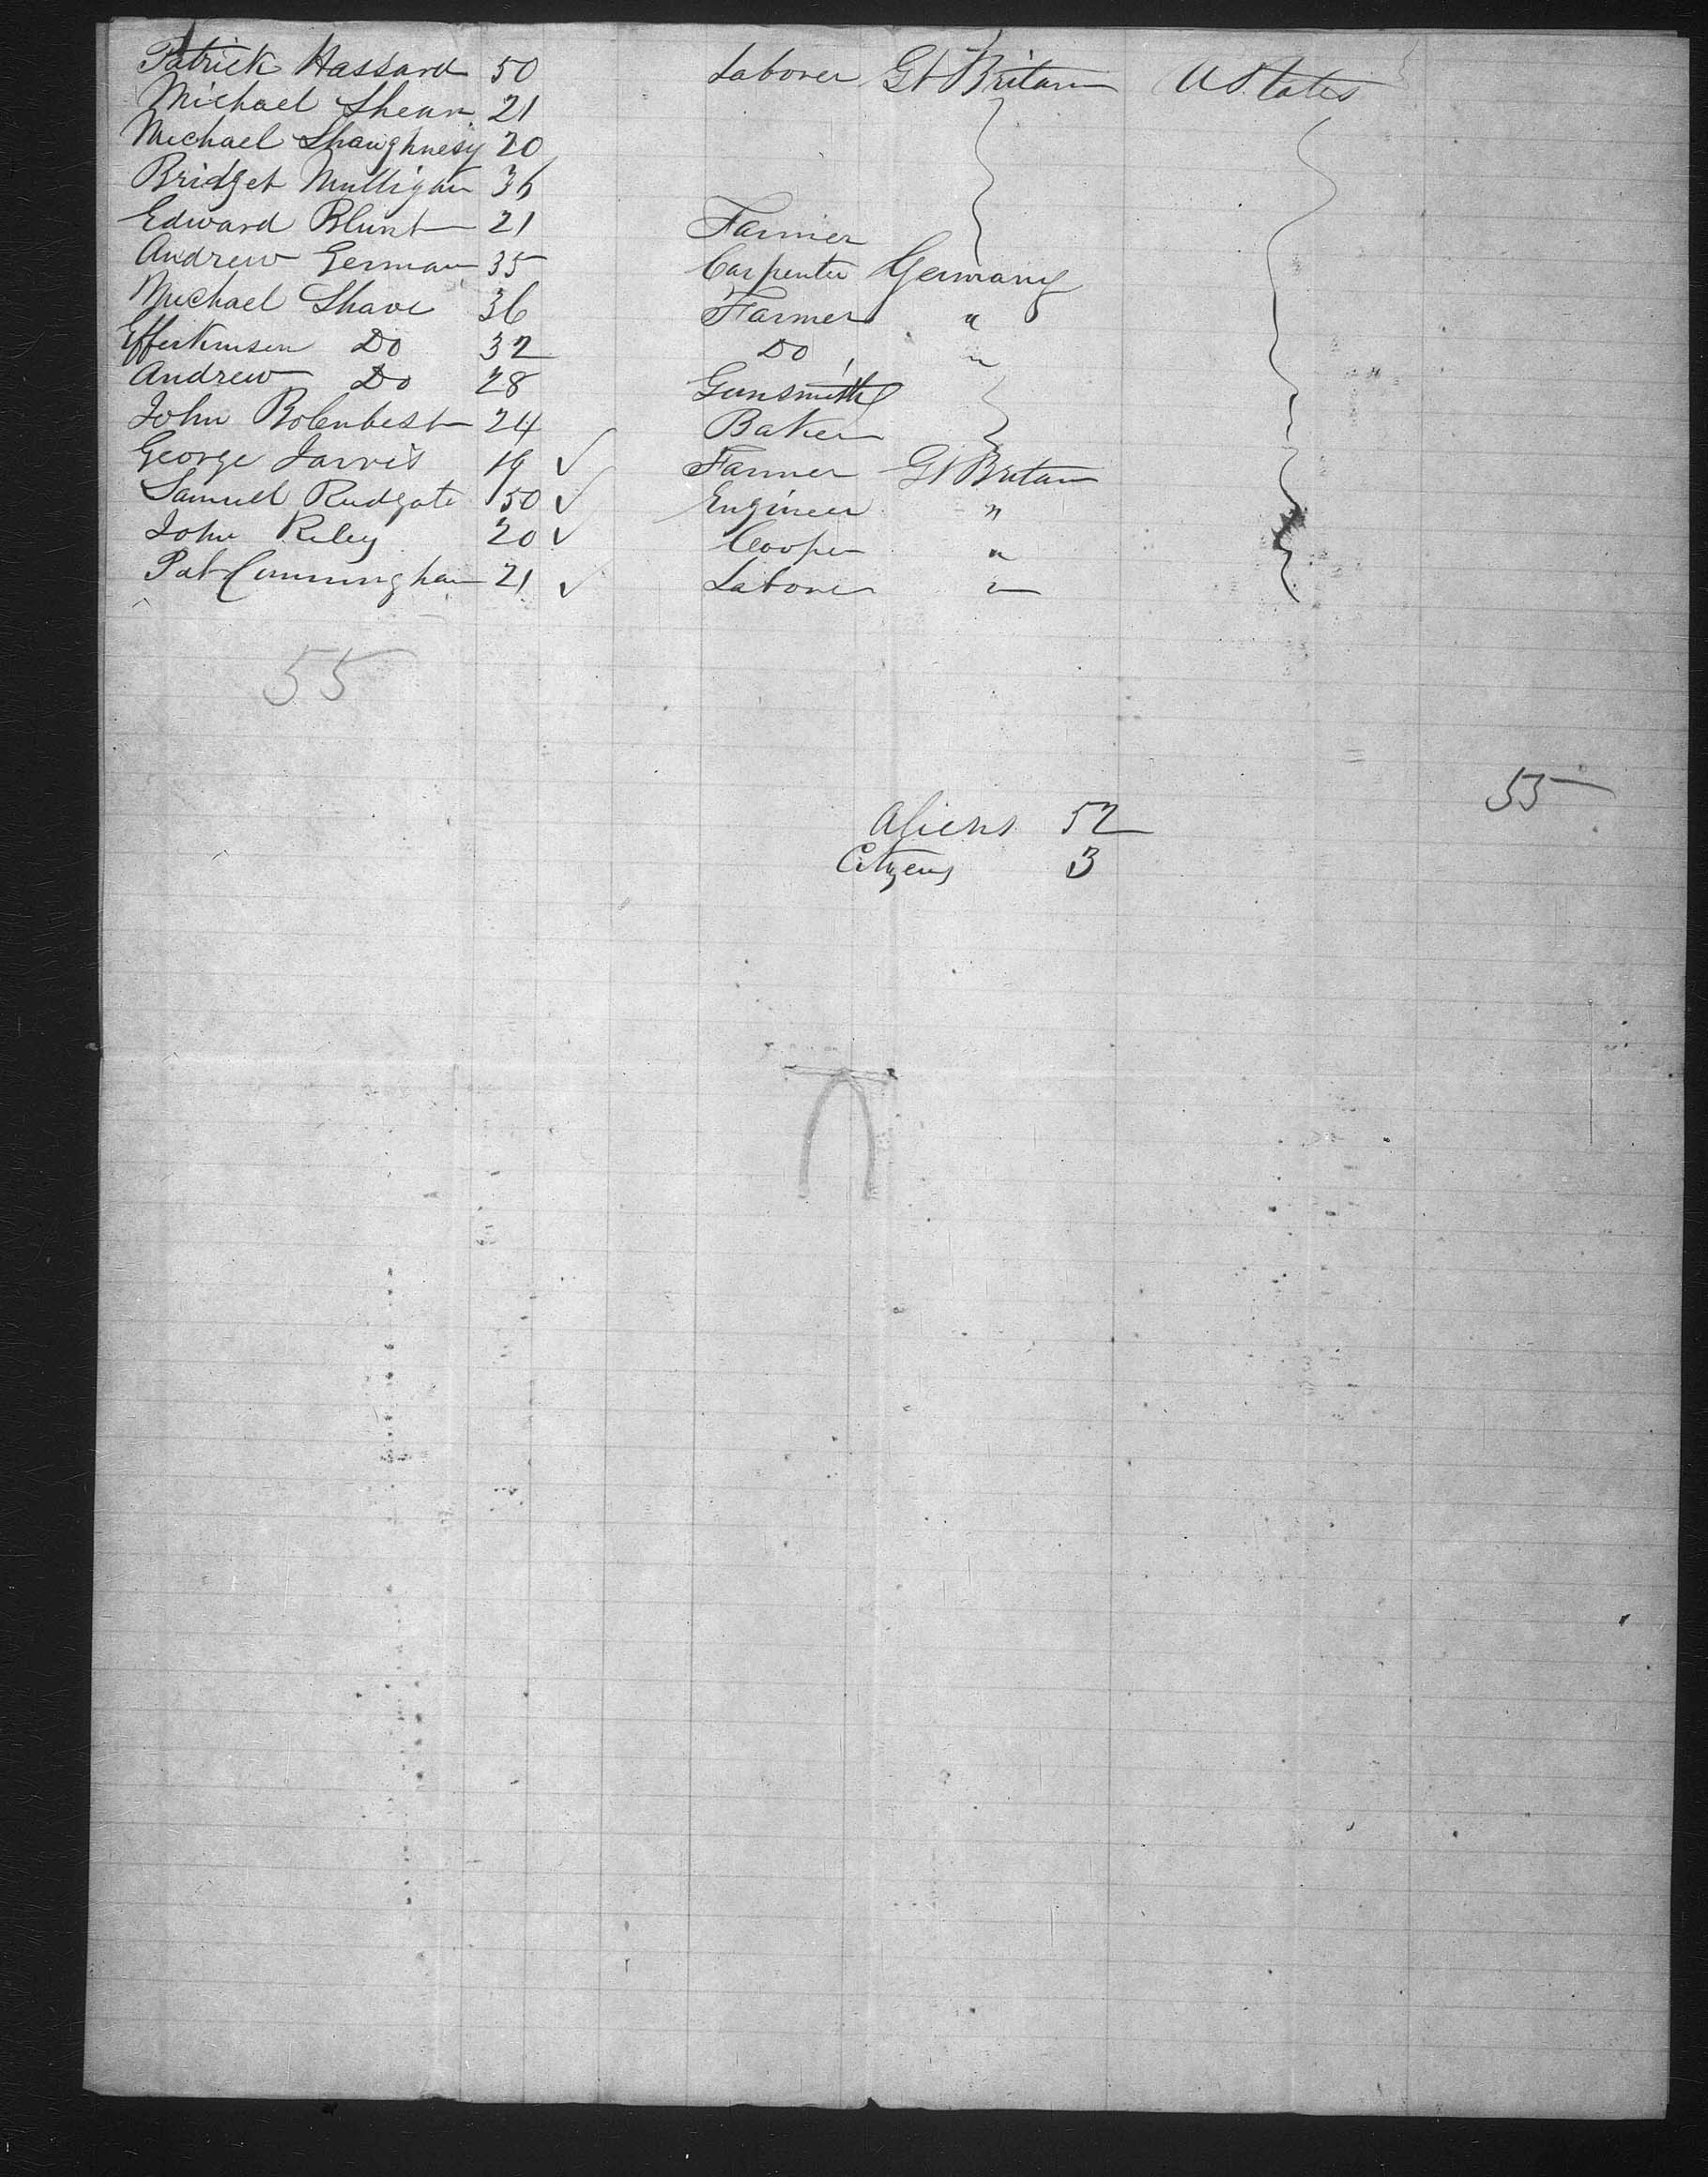 Patrick Hassard 50 Laborer Gt Britain U States
Michael Shean 21
Michael Shaughnesy 20
Bridget Mulligan 36
Edward Blunt 21 Farmer
Andrew German 35 Carpenter Germany
Michael Shave 36 Farmer "
Do 32 Do "
Andrew Do 28 Gunsmith
John 24 Baker
George Jarvis 19 ✓ Farmer Gt Britain
Samuel Rudgate 50 ✓ Engineer "
John Riley 20 ✓ Cooper "
Pat Cunningham 21 ✓ Laborer "
55
55
Aliens 52
Citizens 3